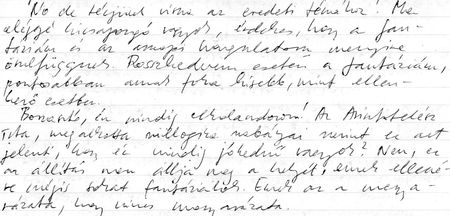 No de térjünk vissza az eredeti témához! Ma
eléggé kicsapongó vagyok, érdekes, hogy a fan-
táziám és az anyagi hangulatom mennyire
összefüggenek. Rosszkedvem esetén a fantáziám,
pontosabban annak foka kisebb, mint ellen-
kező esetben.
Bosszantó, én mindig elkalandozom! Az Arisztotelész
írta, megalkotta szillogizmus szabályai szerint ez azt
jelenti, hogy én mindig jókedvű vagyok? Nem, ez
az állítás nem állja meg a helyét, ennek ellené-
re mégis sokat fantáziálok. Ennek az a magya-
rázata, hogy nincs magyarázata.